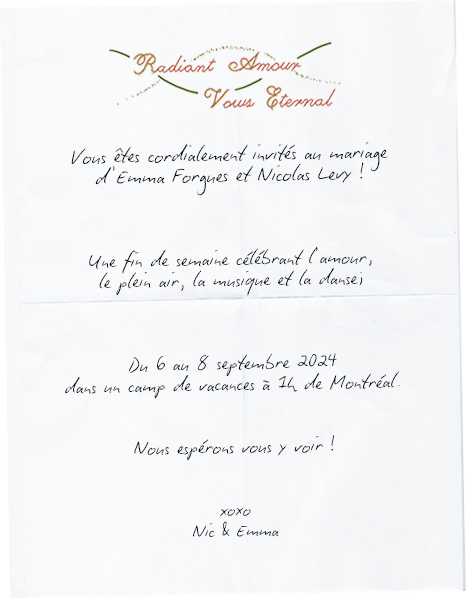 Radiant Amour
Vows Eternal
Vous êtes cordialement invités au mariage
d'Emma Forgues et Nicolas Levy !
Une fin de semaine célébrant l'amour,
le plein air, la musique et la danse;
Du 6 au 8 septembre 2024
dans un camp de vacances à 1h de Montréal.
Nous espérons vous y voir !
xoxo
Nic & Emma